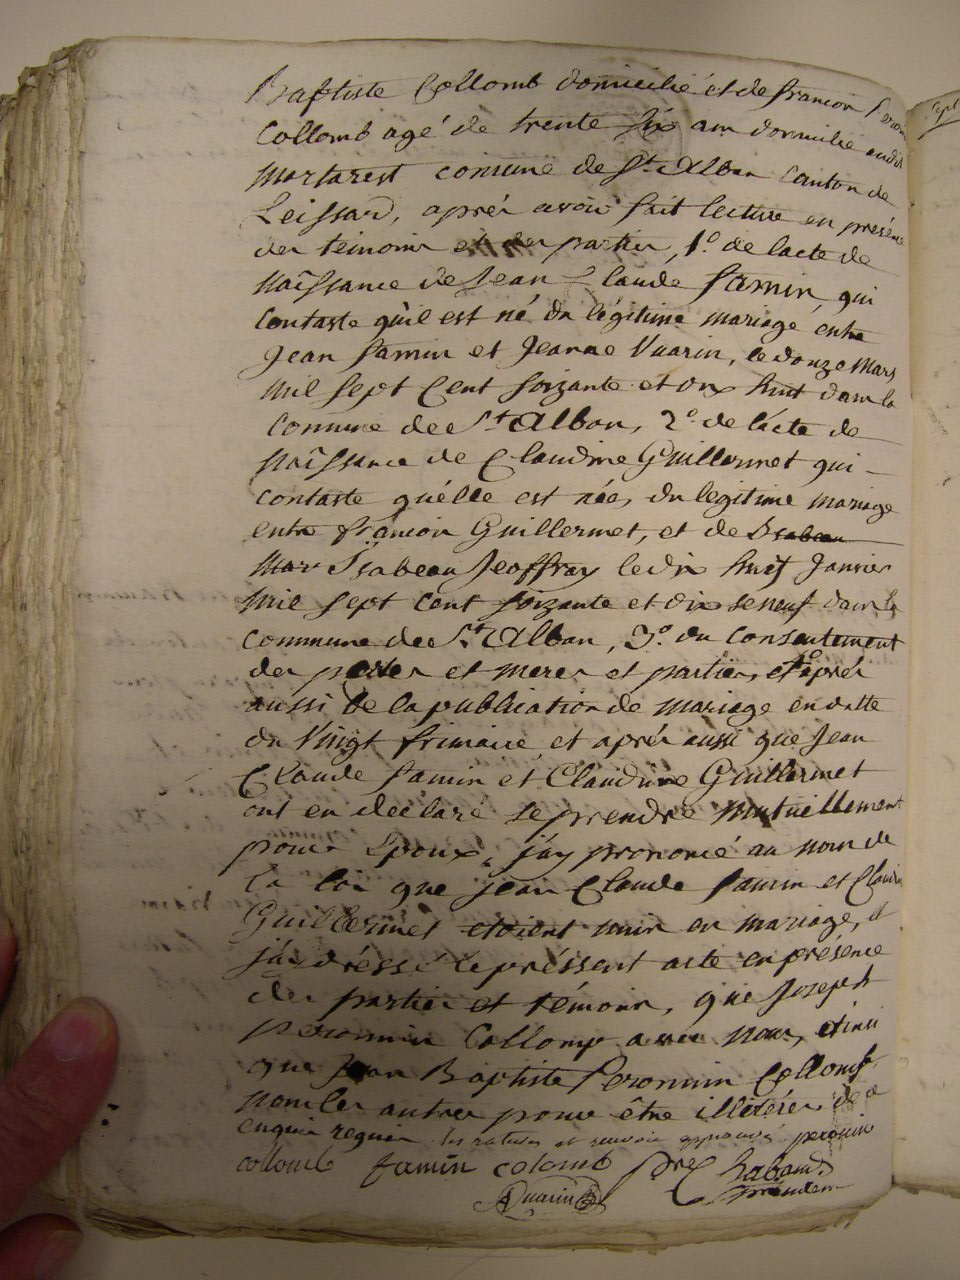 Baptiste Collomb domicilié et de francoir
Collomb agé de trente six ans domicilié audit
Martarest comune de St. Alban Canton de
Leissard, aprér avoir fait lecture en presénce
der témoinr et der partier, 1.° de lacte de
naissance de Jean Claude famin, qui
Contaste qu'il est né du légitime mariage entre
Jean famin et Jeanne Vuarin, le douze Mars
mil sept Cent soizante et dix huit dans la
Comune de St. Alban, 2.° de lacte de
naissance de Claudine Guillermet qui
contaste quélle est née, du legitime mariage
entre francoir Guillermet, et de Isabeau
Mar Isabeau Jeoffray le dix huit Janvier
mil sept cent soizante et dix seneuf dans la
commune de St. Alban, 3.° du consentement
der perer et merer et partier, et aprér
aussi de la publication de mariage en datte
du Vingt frimaire et aprér aussi que Jean
Claude famin et Claudine Guillermet
ont en déclaré se prendre mutuellement
pour Epoux, j'ay prononcé au nom de
la loi que jean Claude famin et Claudine
Guillermet etoient unir en mariage, et
j'ai dréssé le préssent acte en présence
der partier et témoinr, que Joseph
peronnin Collomp avec nour, etinsi
que Jean Baptiste Peronnin Collomb,
non ler autrer pour être illitérér, de ce
enquir requir les ratures et renvoir approuvés perounin
collomb famin colomb Rabaud
Vuarin